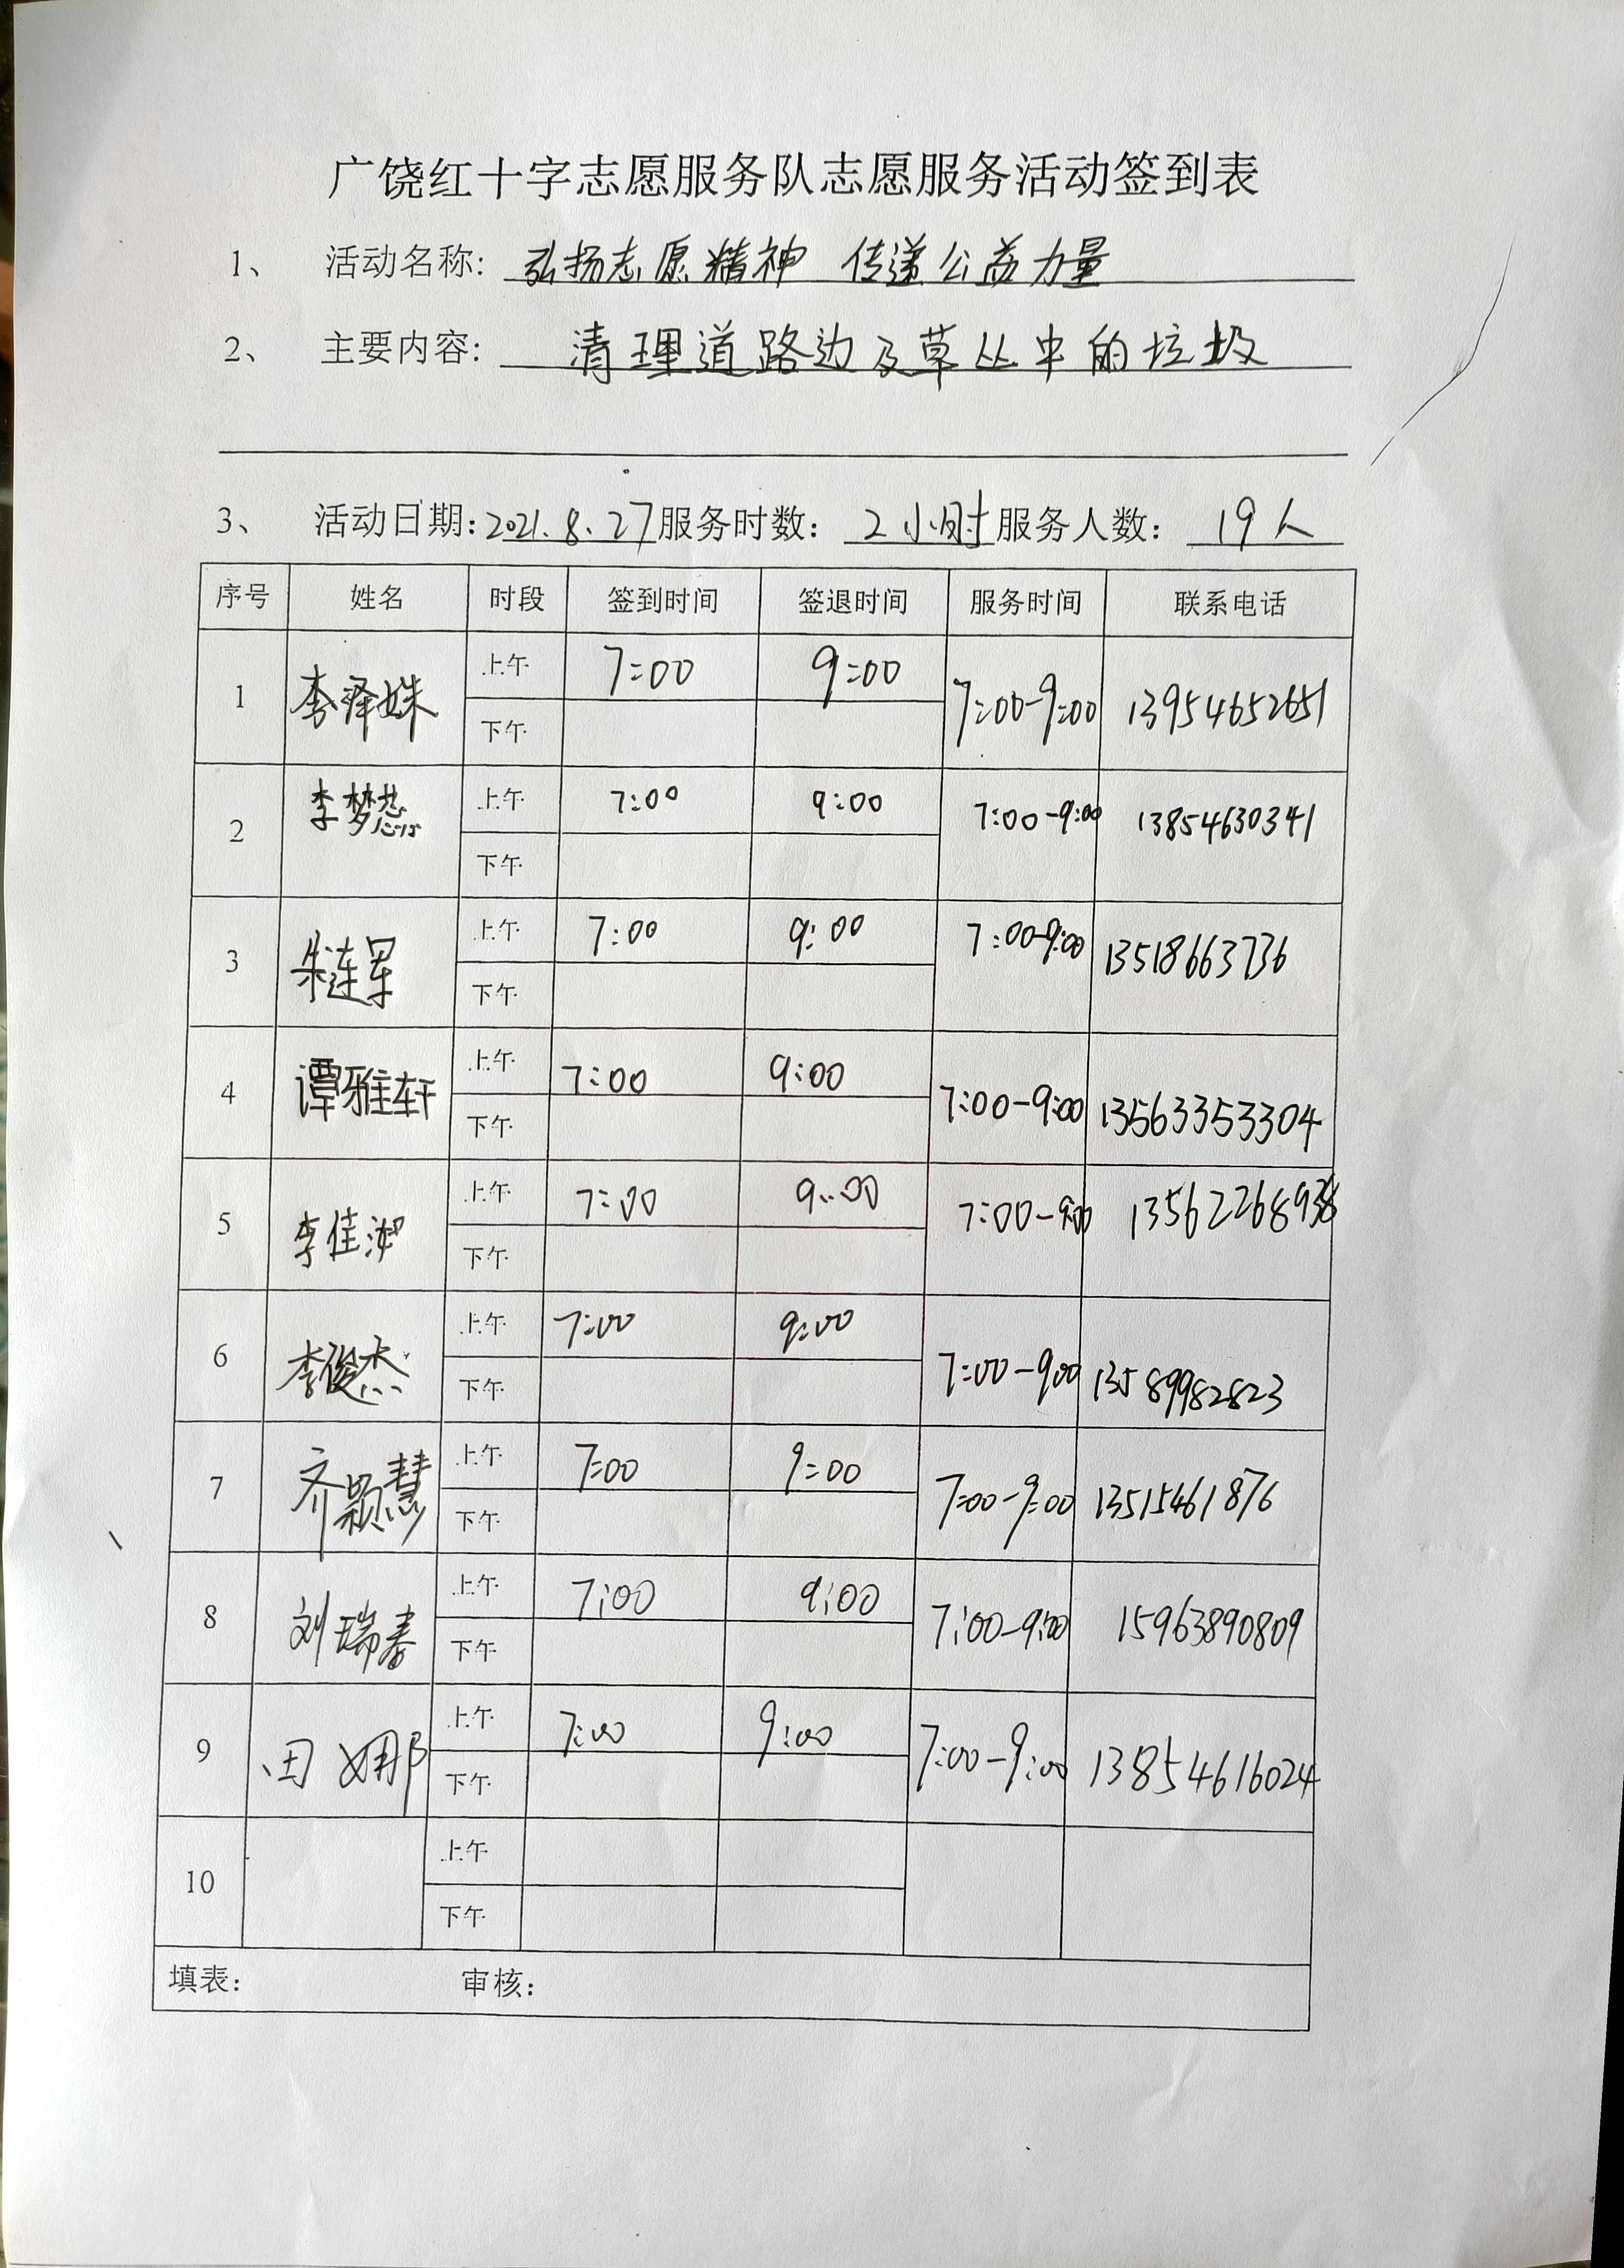 广饶红十字志愿服务队志愿服务活动签到表
1、 活动名称: 弘扬志愿精神 传递公益力量
2、 主要内容: 清理道路边及草丛中的垃圾
3、 活动日期: 2021.8.27 服务时数: 2小时 服务人数: 19人
序号 姓名 时段 签到时间 签退时间 服务时间 联系电话
1 李泽姝 上午 7:00 9:00 7:00-9:00 13954652651
下午
2 李梦 上午 7:00 9:00 7:00-9:00 13854630341
下午
3 朱连军 上午 7:00 9:00 7:00-9:00 13518663736
下午
4 谭雅轩 上午 7:00 9:00 7:00-9:00 13563353304
下午
5 李佳 上午 7:00 9:00 7:00-9:00
下午
6 李俊杰 上午 7:00 9:00 7:00-9:00 13589982823
下午
7 齐颖慧 上午 7:00 9:00 7:00-9:00 13515461876
下午
8 刘瑞春 上午 7:00 9:00 7:00-9:00 15963890809
下午
9 田娜 上午 7:00 9:00 7:00-9:00 13854616024
下午
10 上午
下午
填表: 审核: